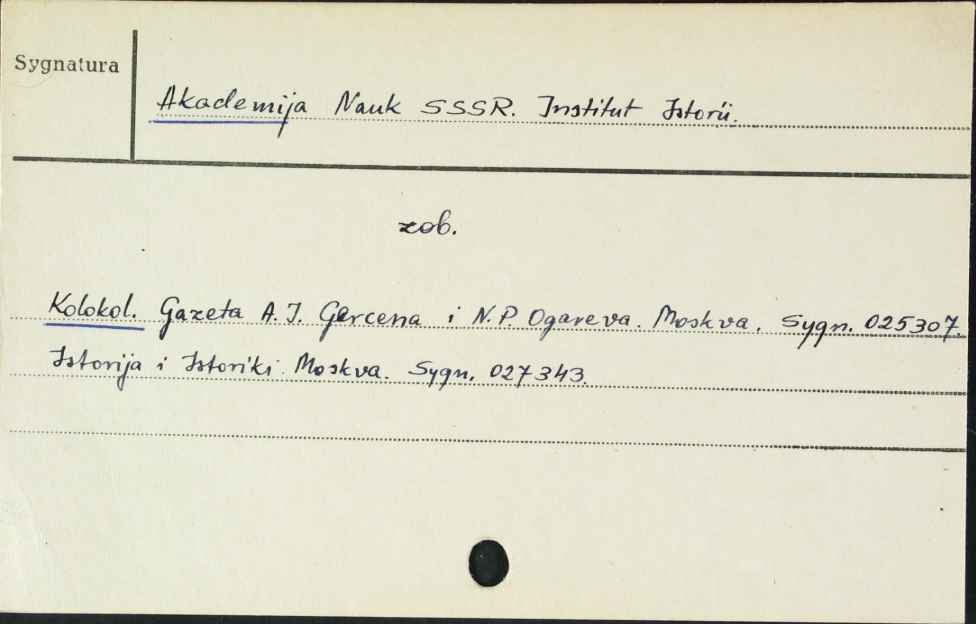 Sygnatura
Akademija Nauk SSSR. Institut Istorii.
zob.
Kolokol. Gazeta A.I. Gercena i N.P. Ogareva. Moskva. Sygn. 025307.
Istorija i Istoriki. Moskva. Sygn. 027343.